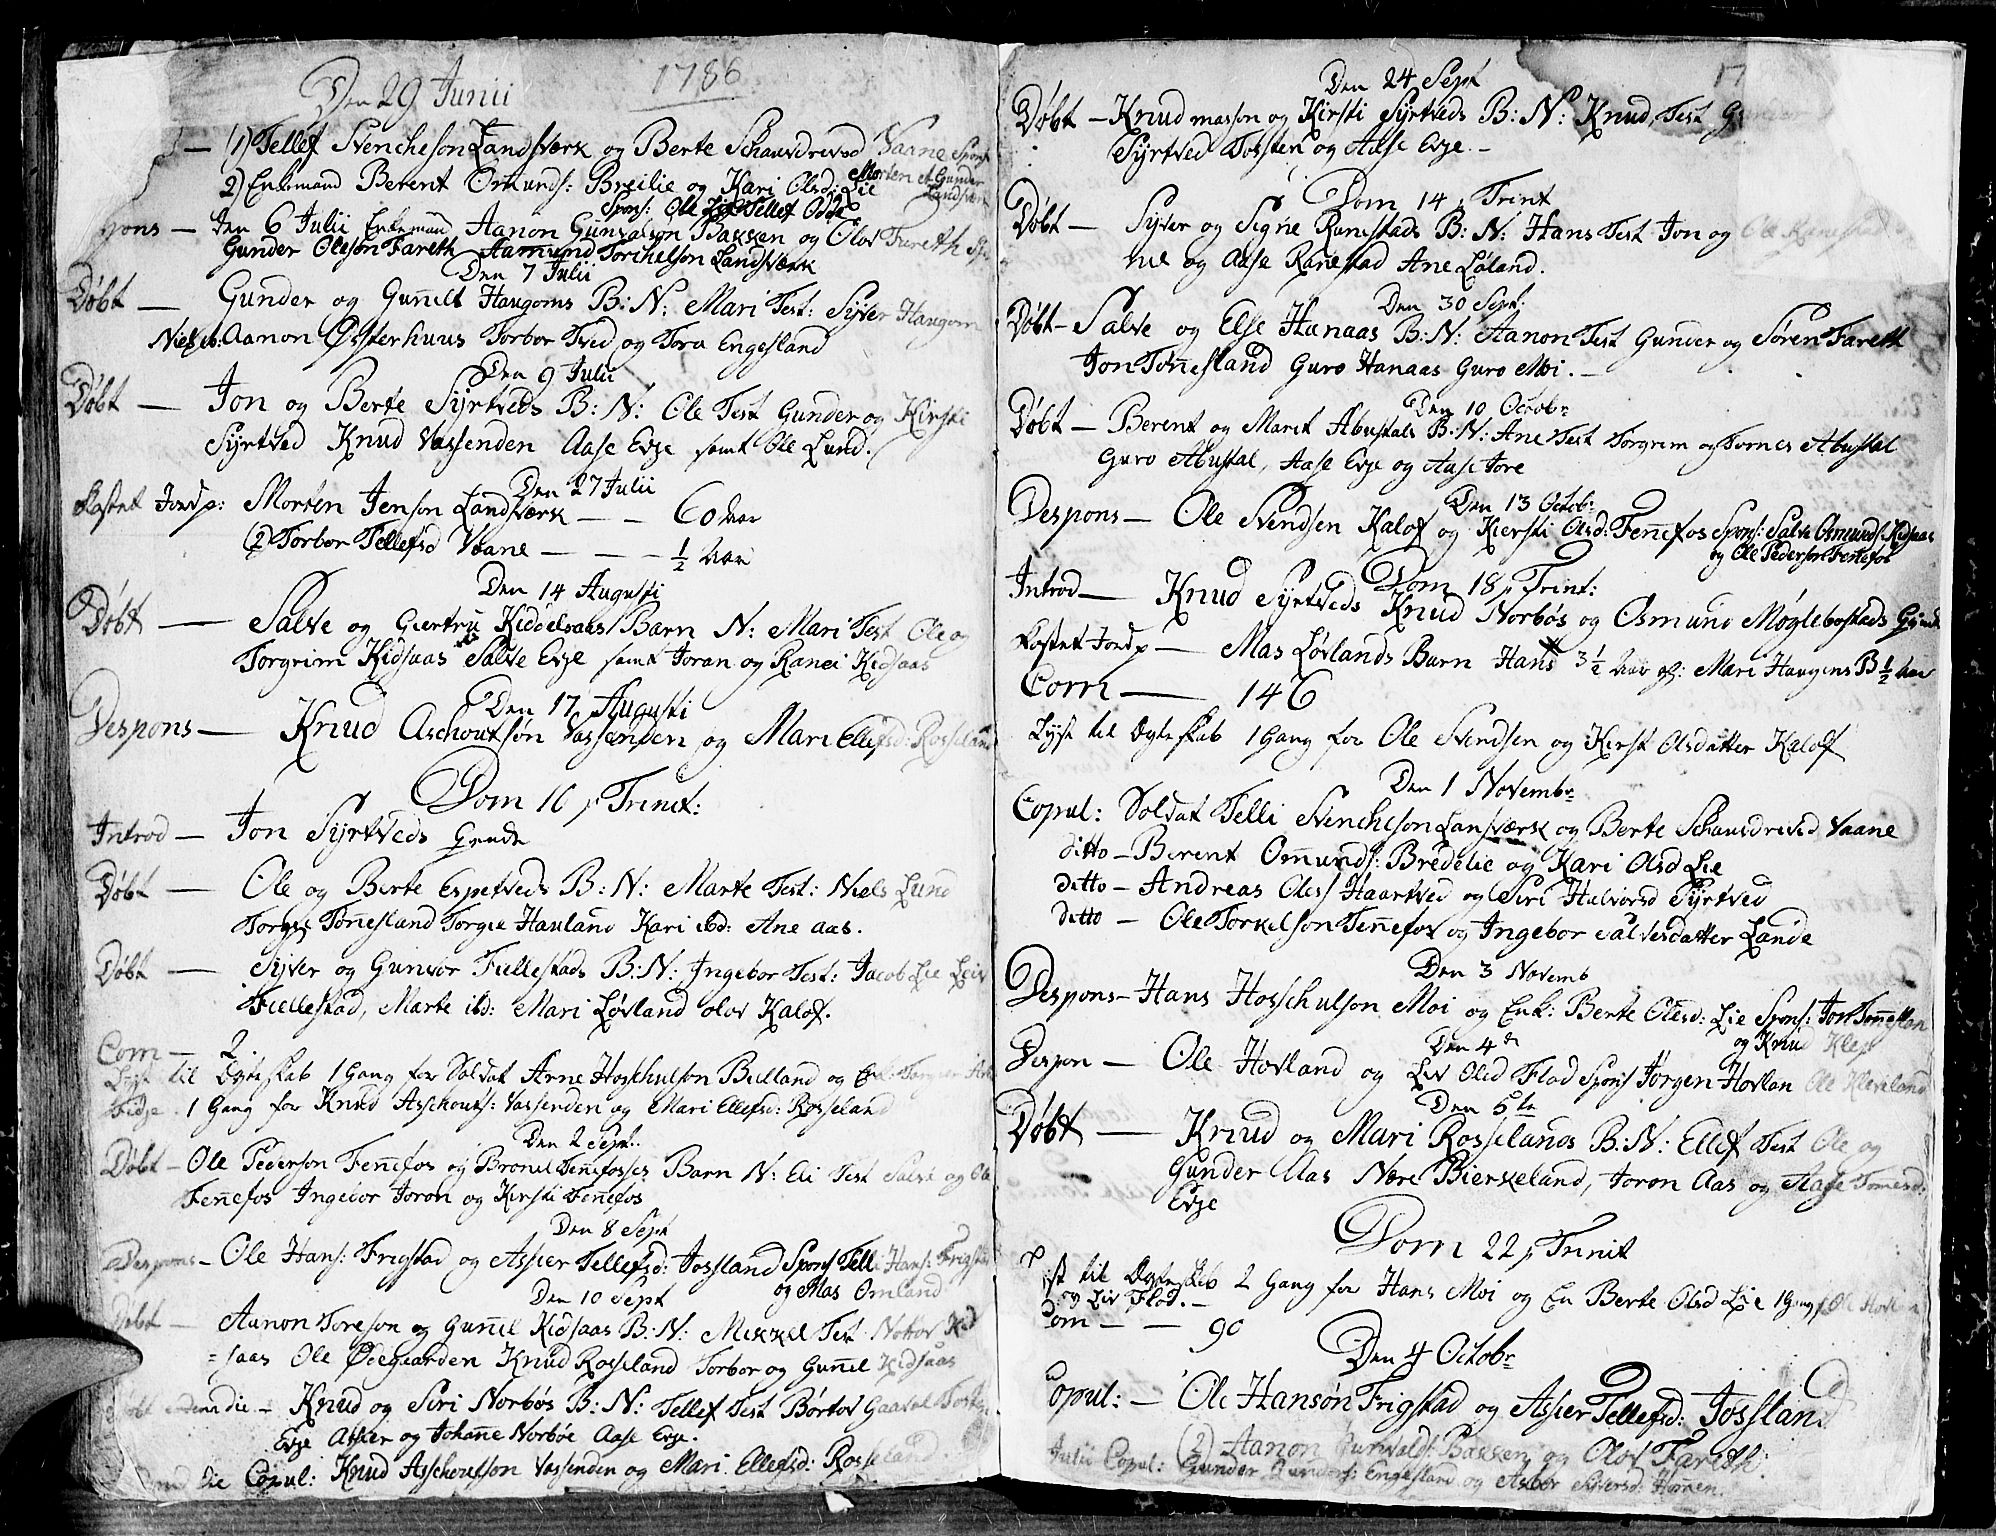 1786
Den 29 Junii
(1) Tellef Svencheson Landsværk og Berte Schausdreved Vaane Spons
2) Enkemand Berent Omunds: Breilie og Kari Olsd: Lie Morten et Gunder Landsværk
Spons: Ole Lie Tellef Odde
Den 6 Julii Enkemand Aanon Gunvalson Bakken og Olov Fareth
Gunder Oleson Fareth Aamund Torchelson Landsværk
Den 7 Julii
Døbt — Gunder og Guñelt Haugoms B: N: Mari Test: Syver Haugom
Niels ib: Aanon Østerhuus Torbor Tved og Tora Engesland
Den 9 Julii
Døbt — Jon og Berte Syrtveds B: N: Ole Test Gunder og Kirsti
Syrtved Knud Vassenden Aase Evje samt Ole Lund.
Den 27 Julii
Kastet Jord p: Morten Jenson Landsværk — — 60 Aar
(2) Torbor Tellefsd Vaane — — — ½ Aar
Den 14 Augusti
Døbt — Salve og Giertru Kiddelsaas Barn N: Mari Test Ole og
Torgrim Kidsaas Salve Evje samt Joran og Ranei Kidsaas
Den 17 Augusti
Despons — Knud Aschoutsøn Vassenden og Mari Ellefsd: Rosseland
Dom 10 p Trinit:
Introd — Jon Syrtveds
Døbt — Ole og Berte Espetveds B: N: Marte Test: Niels Lund
Torgr Toñesland Torgie Hauland Kari ibd: Ane Aas.
Døbt — Syver og Gunvor Fiellestads B: N: Ingebor Test: Jacob Lie Leiv
Fiellestad, Marte ibd: Mari Løvland Olov Kalof.
Com — 2.
Lyst til Egteskab 1 Gang for Soldat Arne Hoschulson Bieland og
1 Gang for Knud Asschouts: Vassenden og Mari Ellefsd: Rosseland
Den 2 Sept.
Døbt — Ole Pederson Feñefos og Bronil Feñefosses Barn N: Eli Test Salve og Ole
Feñefos Ingebor Joron og Kirsti Feñefos
Den 8 Sept
Despons — Ole Hans: Frigstad og Assier Tellefsd: Jossland Spons Telli Hans: Frigstad
og Mas Omland
Den 10 Sept
Døbt — Aanon Toreson og Guñil Kidsaas B: N: Mikkel Test Nottov Kid
= saas Ole Ødegaarden Knud Rosseland Torbor og Guñil Kidsaas
Døbt eodem die — Knud og Siri Norbøs B: N: Tellef Test Børtov Gaaval
Evje Asker og Johañe Norbøe Aase Evje.
die Copul: Knud Asschoutson Vassenden og Mari Ellefsd: Rosseland
17
Den 24 Sept
Døbt — Knud masson og Kirsti Syrtveds B: N: Knud, Test Gunder
Syrtved Torsten og Aase Evje. —
Dom 14 p Trint
Døbt — Syver og Signe Ranestads B: N: Hans Test Jon og Ole Ranestad
og Aase Ranestad Ane Løland.
Den 30 Sept:
Døbt — Salve og Else Hanaas B: N: Aanon Test Gunder og Søren Fareth
Jon Toñesland Guro Hanaas Guro Moi. —
Den 10 Octobr
Døbt — Berent og Marit Abustals B: N: Ane Test Torgrim og Tornes Abustal
Guro Abustal, Aase Evje og Aase Tore
Den 13 Octobr
Despons — Ole Svendsen Kalof og Kiersti Olsd: Feñefos Spons: Salve Osmunds: Kidsaas
og Ole Pederson Feñefos
Dom 18 p Trint:
Introd — Knud Syrtveds Knud Norbøs og Osmund Møglebostads
Kastet Jord p — Mas Løvlands Barn Hans 3½ Aar og: Mari Haugens B ½ Aar
Com — 146
Lyst til Egteskab 1 Gang for Ole Svendsen og Kirst Olsdatter Kalof
Den 1 Novembr
Copul: Soldat Telli Svencheson Lansværk og Berte Schausdreved Vaane
ditto — Berent Omunds: Bredelie og Kari Olsd Lie
ditto — Andreas Oless Haartved og Siri Halvorsd Syrtved
ditto — Ole Torkelson Feñefos og Ingebor Salvesdatter Lande
Den 3 Novemb
Despons — Hans Hosschulson Moi og Enk: Berte Olesd: Lie Spons: Jon Toñeslan
og Knud Klep
Den 4 de
Despon — Ole Hovland og Liv Olsd Flad Spons Jørgen Hovlan Ole Kleveland
Den 5 te
Døbt — Knud og Mari Rosselands B: N: Ellef Test Ole og
Gunder Aas Nere Bierkeland, Joron Aas og Aase Tomesd:
Evje
Dom 22 p Trinit
Lyst til Egteskab 2 Gang for Hans Moi og En Berte Olsd Lie 1 Gang f Ole Hovlan
og Liv Flad. —
Com — — 90
Den 4 Octobr
Copul: — Ole Hansøn Frigstad og Assier Tellefsd: Jossland
(2) Aanon Gunvalds: Bakken og Olov Fareth:
Julii Copul: Gunder Gunders: Engesland og Asbor Syversd: Homen.